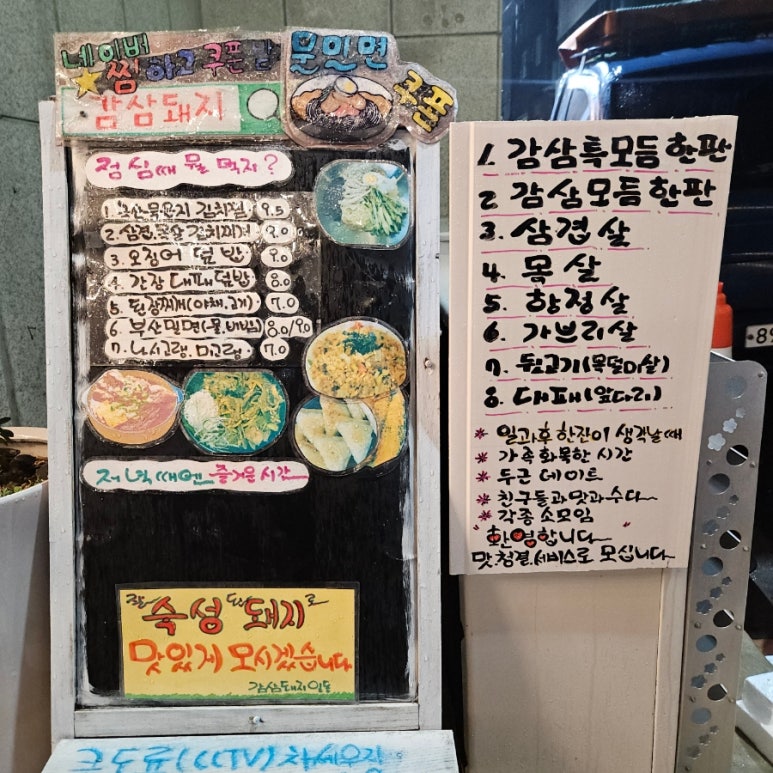 네이버
찜 하고 쿠폰 받
물밀면
쿠폰
감삼돼지
점심때 뭘 먹지?
1. 묵은지 김치찜 9.5
2. 삼겹 김치찌개 9.0
3. 오징어 덮밥 9.0
4. 간장 대패덮밥 8.0
5. 된장찌개(야채.고기) 7.0
6. 부산밀면(물.비빔) 8.0/9.0
7. 나시고랭. 미고랭. 7.0
저녁때엔 즐거운 시간
잘 숙성된 돼지로
맛있게 모시겠습니다
감삼돼지일동
그도류(CCTV)
1. 감삼특모듬한판
2. 감삼모듬한판
3. 삼겹살
4. 목살
5. 항정살
6. 가브리살
7. 뒷고기(목덜미살)
8. 대패(앞다리)
* 일과후 한잔이 생각날때
* 가족 화목한 시간
* 두근 데이트
* 친구들과 맛과수다~
* 각종 소모임
환영합니다~
맛.청결.서비스로 모십니다
89